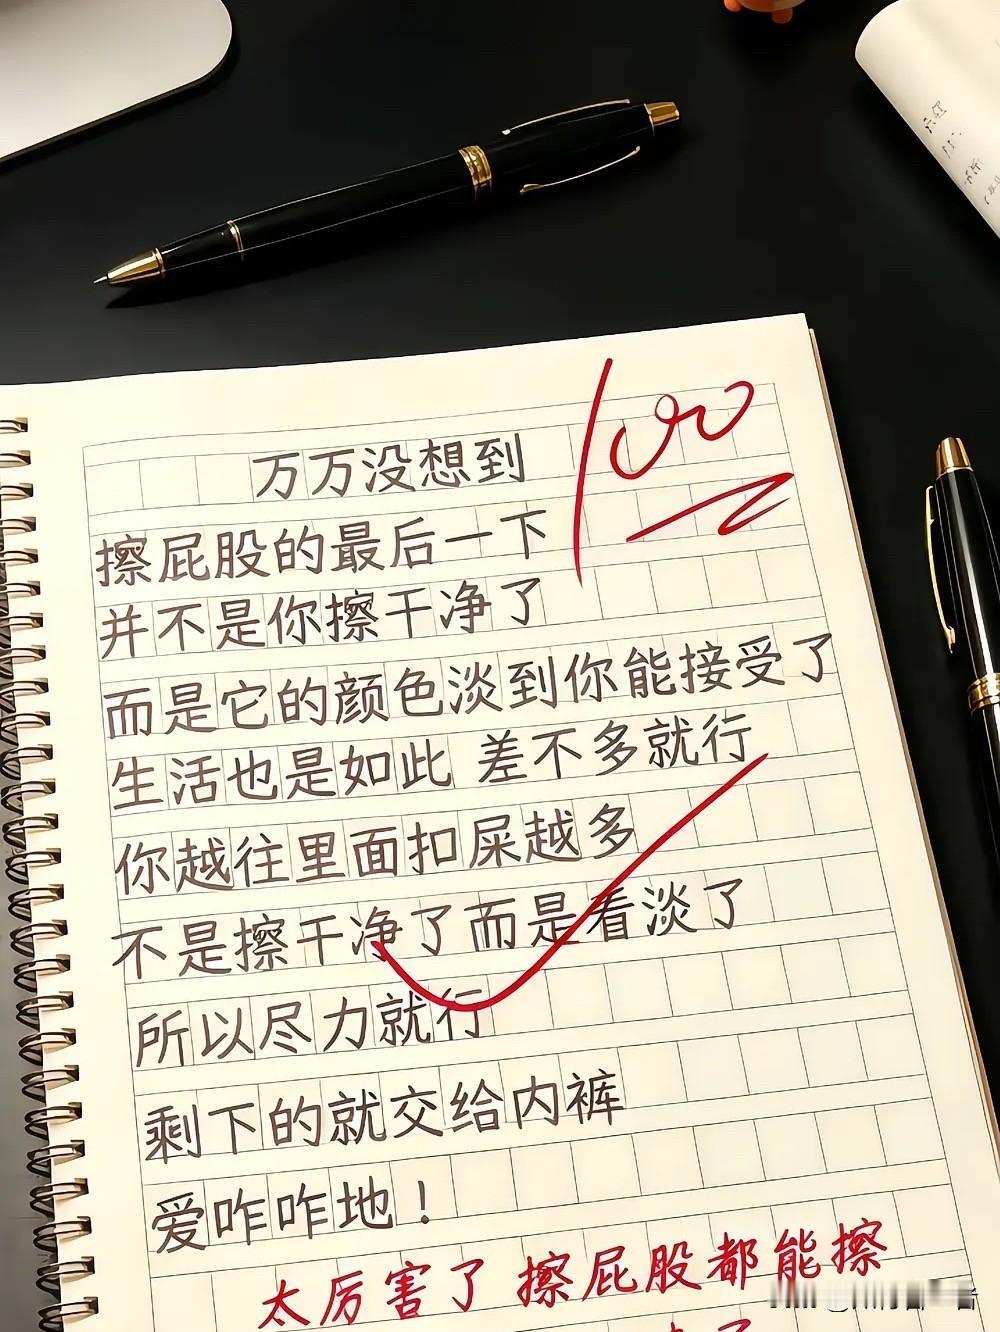 100
万万没想到
擦屁股的最后一下
并不是你擦干净了
而是它的颜色淡到你能接受了
生活也是如此 差不多就行
你越往里面扣屎越多
不是擦干净了而是看淡了
所以尽力就行
剩下的就交给内裤
爱咋咋地！
太厉害了 擦屁股都能擦